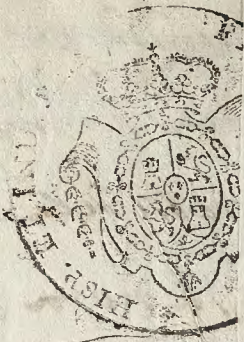 HISP. ET IND